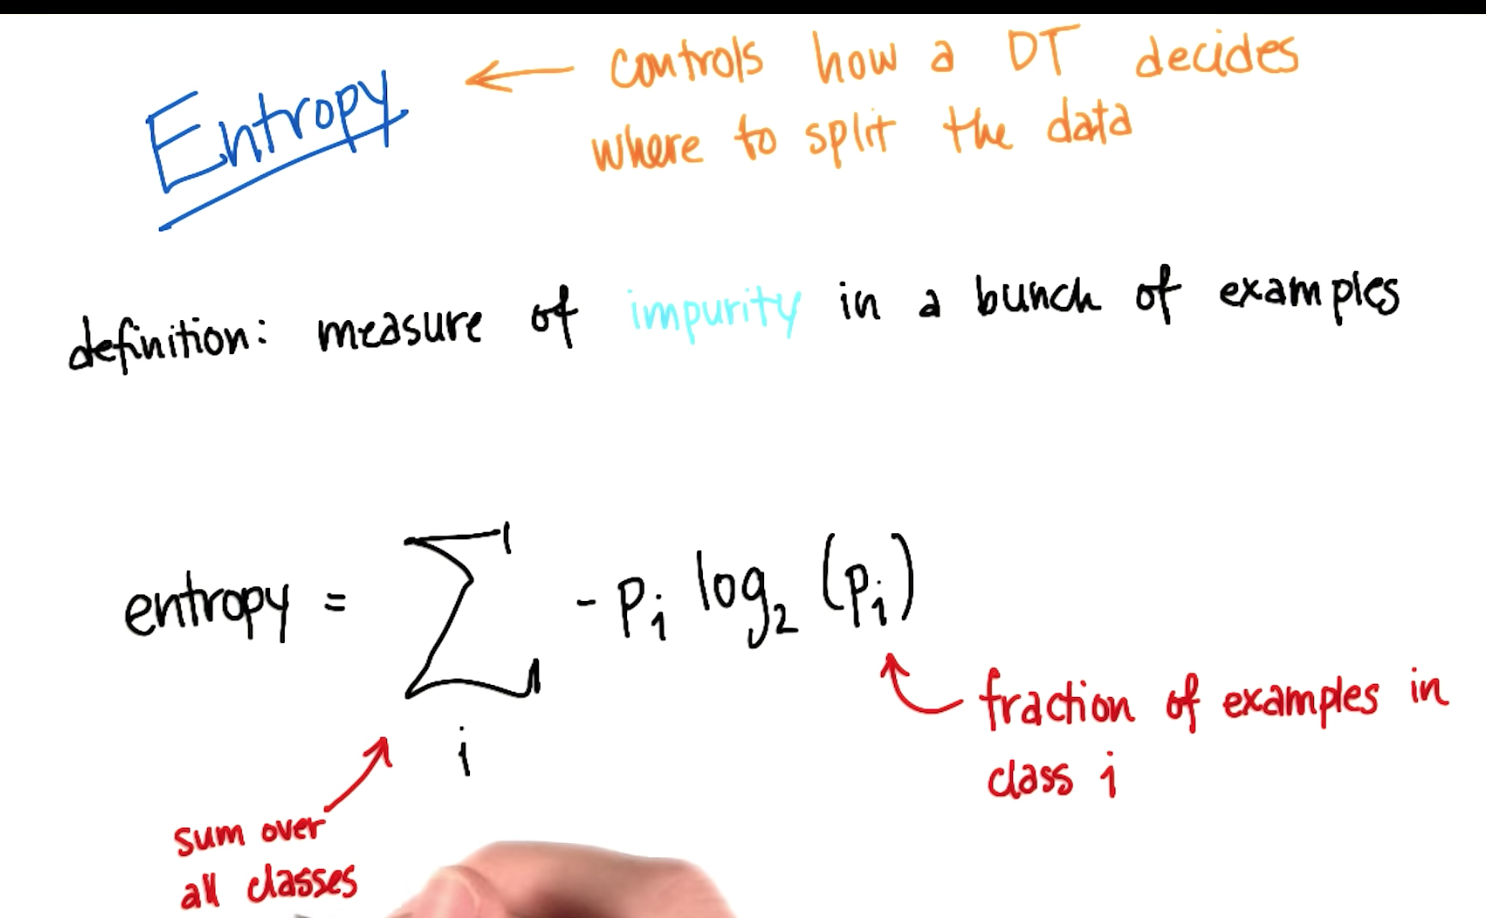 Entropy ← controls how a DT decides
where to split the data
definition: measure of impurity in a bunch of examples
entropy = ∑ - pᵢ log₂ (pᵢ)
i
fraction of examples in
class i
sum over
all classes